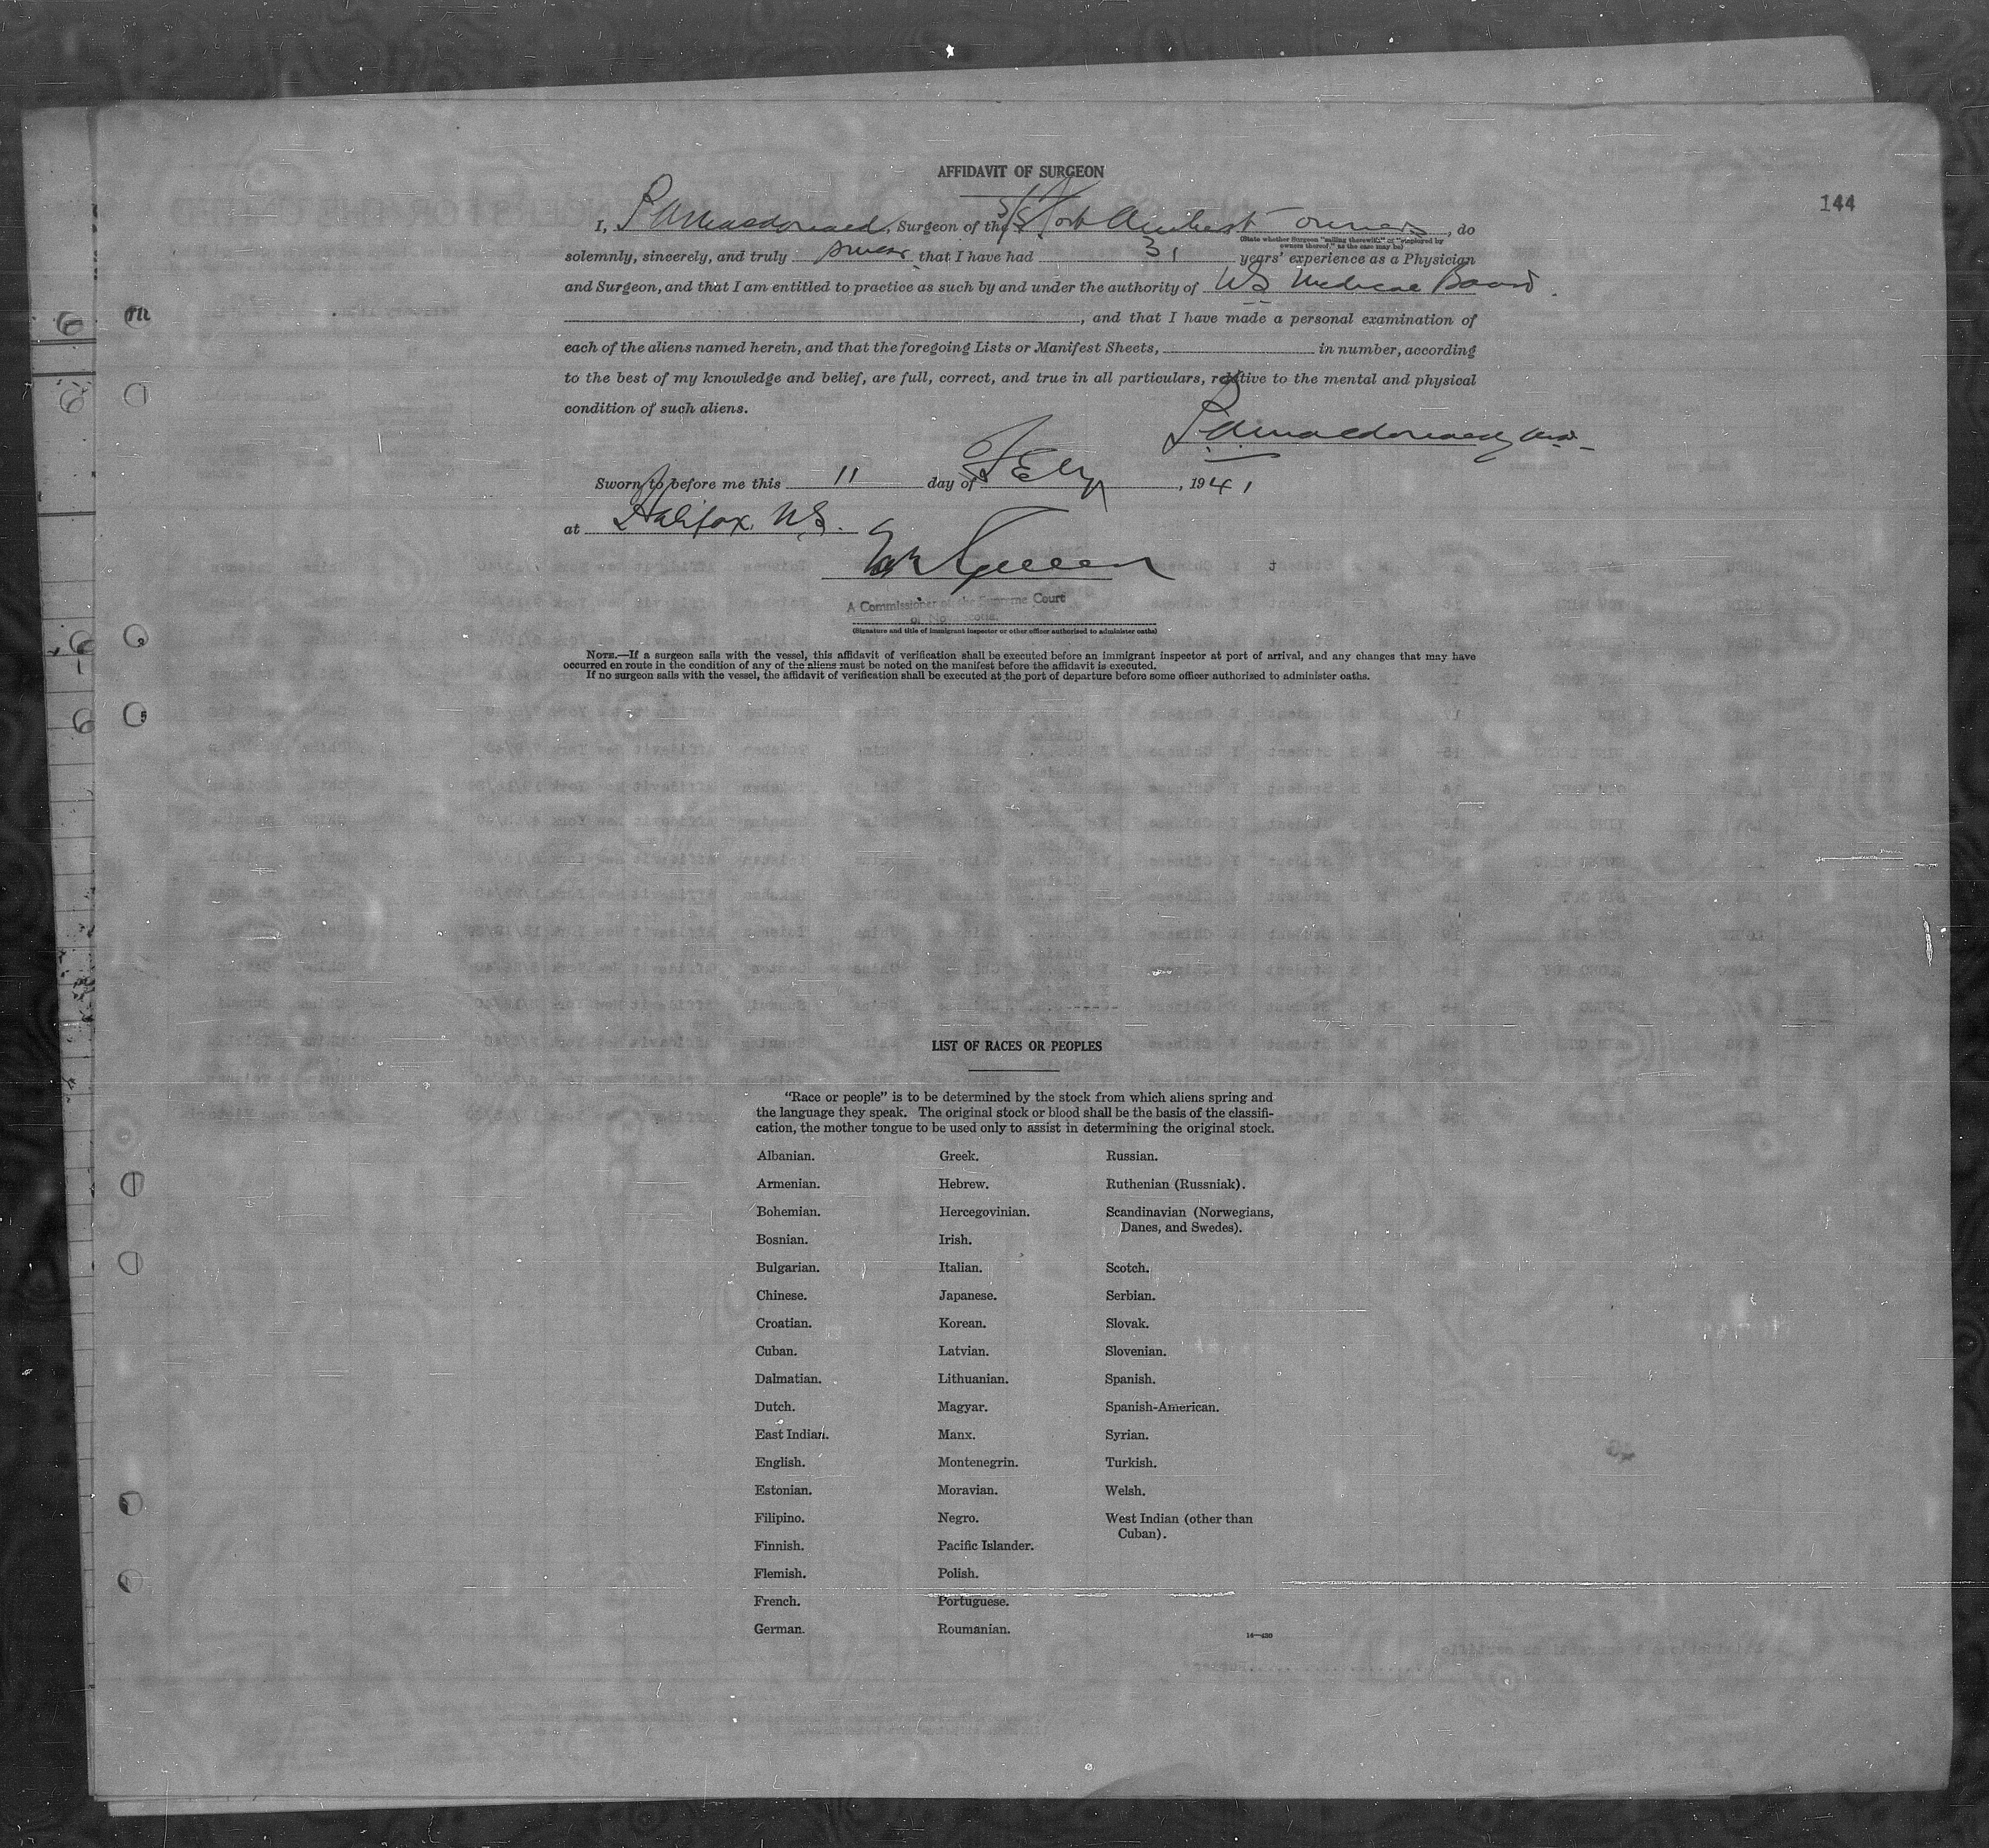 AFFIDAVIT OF SURGEON
144
I, P A Macdonald, Surgeon of the S/S Fort Amherst owners, do
(State whether Surgeon "sailing therewith," or "employed by
owners thereof," as the case may be)
solemnly, sincerely, and truly swear that I have had 31 years' experience as a Physician
and Surgeon, and that I am entitled to practice as such by and under the authority of NS Medical Board.
, and that I have made a personal examination of
each of the aliens named herein, and that the foregoing Lists or Manifest Sheets, in number, according
to the best of my knowledge and belief, are full, correct, and true in all particulars, relative to the mental and physical
condition of such aliens.
P.A. Macdonald
Sworn to before me this 11 day of Feby, 1941
at Halifax, N.S.
A Commissioner of the Supreme Court
of Nova Scotia.
(Signature and title of immigrant inspector or other officer authorized to administer oaths)
NOTE.—If a surgeon sails with the vessel, this affidavit of verification shall be executed before an immigrant inspector at port of arrival, and any changes that may have
occurred en route in the condition of any of the aliens must be noted on the manifest before the affidavit is executed.
If no surgeon sails with the vessel, the affidavit of verification shall be executed at the port of departure before some officer authorized to administer oaths.
LIST OF RACES OR PEOPLES
"Race or people" is to be determined by the stock from which aliens spring and
the language they speak. The original stock or blood shall be the basis of the classifi-
cation, the mother tongue to be used only to assist in determining the original stock.
Albanian.
Armenian.
Bohemian.
Bosnian.
Bulgarian.
Chinese.
Croatian.
Cuban.
Dalmatian.
Dutch.
East Indian.
English.
Estonian.
Filipino.
Finnish.
Flemish.
French.
German.
Greek.
Hebrew.
Hercegovinian.
Irish.
Italian.
Japanese.
Korean.
Latvian.
Lithuanian.
Magyar.
Manx.
Montenegrin.
Moravian.
Negro.
Pacific Islander.
Polish.
Portuguese.
Roumanian.
Russian.
Ruthenian (Russniak).
Scandinavian (Norwegians,
Danes, and Swedes).
Scotch.
Serbian.
Slovak.
Slovenian.
Spanish.
Spanish-American.
Syrian.
Turkish.
Welsh.
West Indian (other than
Cuban).
14—430